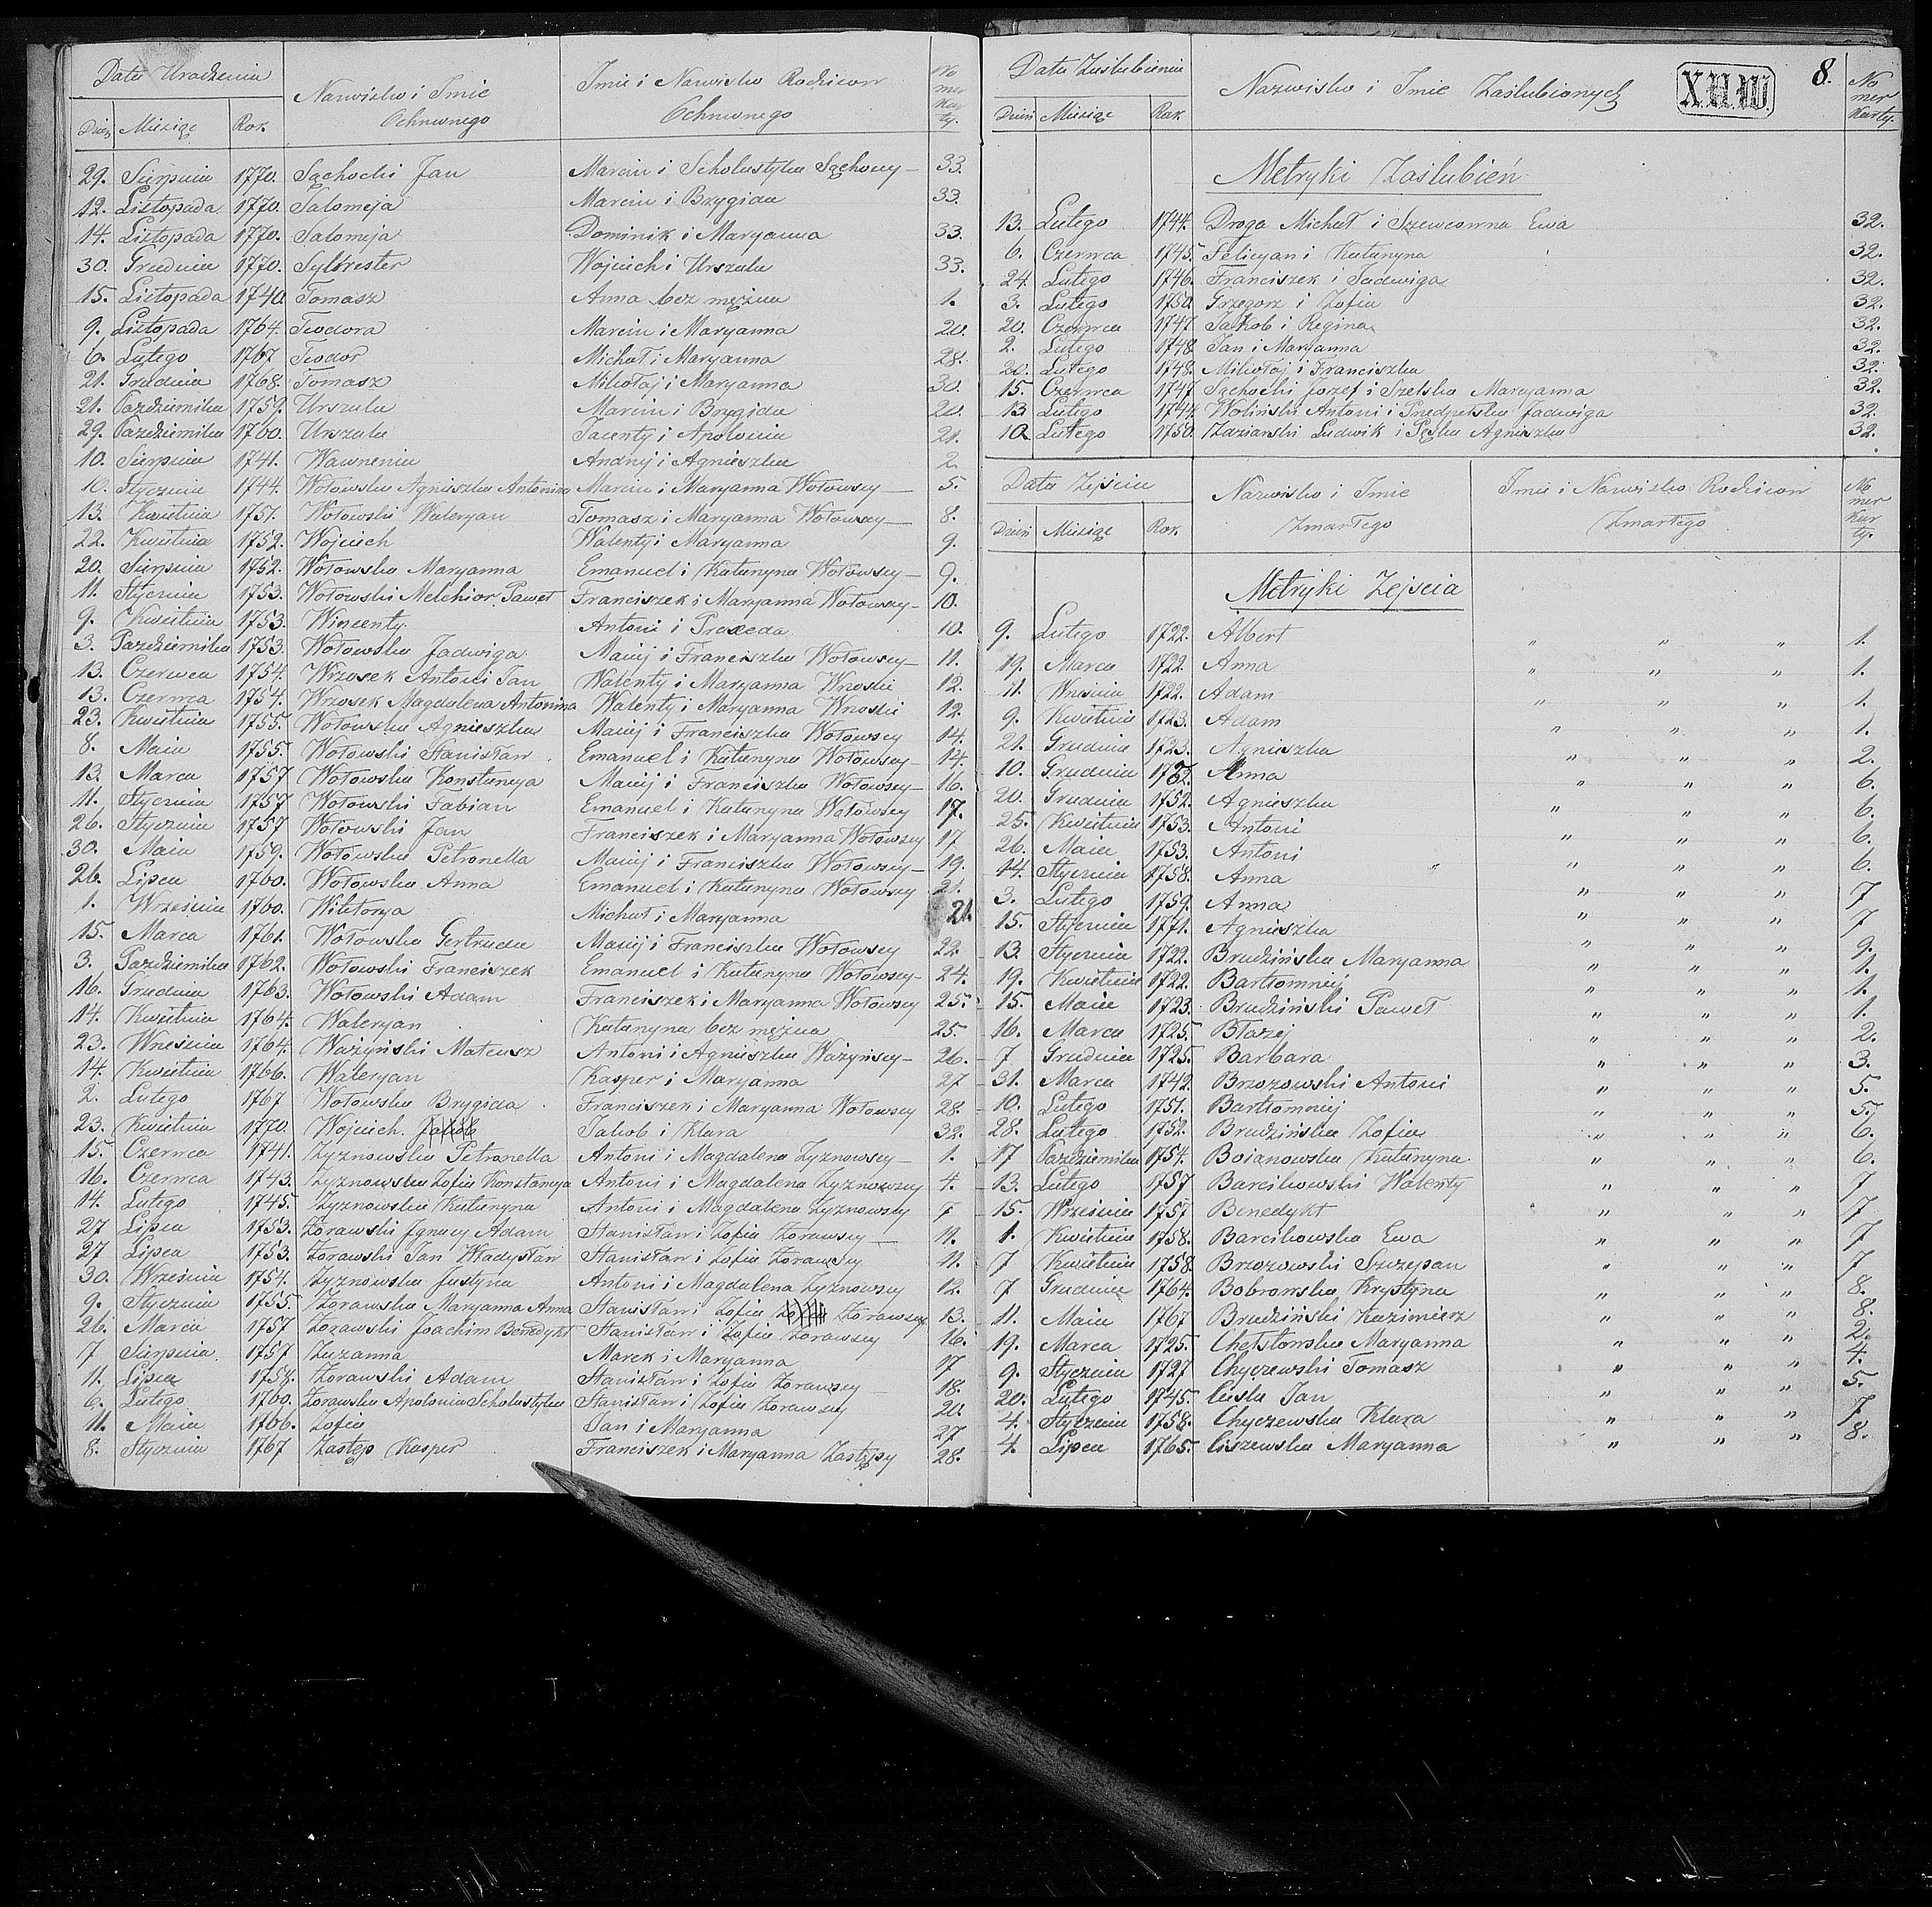 Data Urodzenia
Nazwisko i Imie Ochrzconego
Imie i Nazwisko Rodzicow Ochrzconego
No mer Kar ty.
Dzień Miesiąc Rok
29. Sierpnia 1770. Sąchocki Jan Marcin i Scholastyka Sąchoccy 33.
12. Listopada 1770. Salomeja Marcin i Brygida 33.
14. Listopada 1770. Salomeja Dominik i Maryanna 33.
30. Grudnia 1770. Sylwester Wojciech i Urszula 33.
15. Listopada 1740 Tomasz Anna bez mężna 1.
9. Listopada 1764. Teodora Marcin i Maryanna 20.
6. Lutego 1767 Teodor Michał i Maryanna 28.
21. Grudnia 1768. Tomasz Mikołaj i Maryanna 30.
21. Października 1759. Urszula Marcin i Brygida 20.
29. Października 1760. Urszula Jacenty i Apolonia 21.
10. Sierpnia 1741. Wawrzeniec Andrzej i Agnieszka 2.
10. Stycznia 1744. Wołowska Agnieszka Antonina Marcin i Maryanna Wołowscy 5.
13. Kwietnia 1751. Wołowski Waleryan Tomasz i Maryanna Wołowscy 8.
22. Kwietnia 1752. Wojciech Walenty i Maryanna 9.
20. Sierpnia 1752. Wołowska Maryanna Emanuel i Katarzyna Wołowscy 9.
11. Stycznia 1753. Wołowski Melchior Paweł Franciszek i Maryanna Wołowscy 10.
9. Kwietnia 1753. Wincenty Antoni i Prexeda 10.
3. Października 1753. Wołowska Jadwiga Maciej i Franciszka Wołowscy 11.
13. Czerwca 1754. Wrzosek Antoni Jan Walenty i Maryanna Wrzoski 12.
13. Czerwca 1754. Wrzosek Magdalena Antonina Walenty i Maryanna Wrzoski 12.
23. Kwietnia 1755. Wołowska Agnieszka Maciej i Franciszka Wołowscy 14.
8. Maia 1755. Wołowski Stanisław Emanuel i Katarzyna Wołowscy 14.
13. Marca 1757 Wołowska Konstancya Maciej i Franciszka Wołowscy 16.
11. Stycznia 1757 Wołowski Fabian Emanuel i Katarzyna Wołowscy 17.
26. Stycznia 1757 Wołowski Jan Franciszek i Maryanna Wołowscy 17
30. Maia 1759. Wołowska Petronella Maciej i Franciszka Wołowscy 19.
26. Lipca 1760. Wołowska Anna Emanuel i Katarzyna Wołowscy 21.
1. Września 1760. Wiktorya Michał i Maryanna 21.
15. Marca 1761. Wołowska Gertruda Maciej i Franciszka Wołowscy 22.
3. Października 1762. Wołowski Franciszek Emanuel i Katarzyna Wołowscy 24.
16. Grudnia 1763. Wołowski Adam Franciszek i Maryanna Wołowscy 25.
14. Kwietnia 1764. Waleryan Katarzyna bez mężna 25.
23. Września 1764. Ważyński Mateusz Antoni i Agnieszka Ważyńscy 26.
14. Kwietnia 1766. Waleryan Kasper i Maryanna 27
2. Lutego 1767 Wołowska Brygida Franciszek i Maryanna Wołowscy 28.
23. Kwietnia 1770. Wojciech Jakob Jakob i Klara 32.
15. Czerwca 1741. Zyznowska Petronella Antoni i Magdalena Zyznowscy 1.
16. Czerwca 1743. Zyznowska Zofia Konstancya Antoni i Magdalena Zyznowscy 4.
14. Lutego 1745. Zyznowska Katarzyna Antoni i Magdalena Zyznowscy 7
27 Lipca 1753. Żorawski Ignacy Adam Stanisław i Zofia Żorawscy 11.
27 Lipca 1753. Żorawski Jan Władysław Stanisław i Zofia Żorawscy 11.
30. Września 1754. Zyznowska Justyna Antoni i Magdalena Zyznowscy 12.
9. Stycznia 1755. Żorawska Maryanna Anna Stanisław i Zofia Żorawscy 13.
26. Marca 1757 Żorawski Joachim Benedykt Stanisław i Zofia Żorawscy 16.
7 Sierpnia 1757 Zuzanna Marek i Maryanna 17
11. Lipca 1758. Żorawski Adam Stanisław i Zofia Żorawscy 18.
6. Lutego 1760. Żorawska Apolonia Scholastyka Stanisław i Zofia Żorawscy 20.
11. Maia 1766. Zofia Jan i Maryanna 27
8. Stycznia 1767 Zastęp Kasper Franciszek i Maryanna Zastępy 28.
8.
Data Zaślubienia
Nazwisko i Imie Zaślubionych
No mer Karty.
Dzień Miesiąc Rok
Metryki Zaślubień
13. Lutego 1744. Droga Michał i Szewcowna Ewa 32.
6. Czerwca 1745. Felicyan i Katarzyna 32.
24. Lutego 1746. Franciszek i Jadwiga 32.
3. Lutego 1750. Grzegorz i Zofia 32.
20. Czerwca 1747 Jakob i Regina 32.
2. Lutego 1748. Jan i Maryanna 32.
20. Lutego 1748. Mikołaj i Franciszka 32.
15. Czerwca 1747 Sąchocki Jozef i Szelska Maryanna 32.
13 Lutego 1744. Woliński Antoni i Jadwiga 32.
10 Lutego 1750. Zaziarski Ludwik i Pęska Agnieszka 32.
Data Zejścia
Nazwisko i Imie Zmarłego
Imie i Nazwisko Rodzicow Zmarłego
No mer Kar ty.
Dzień Miesiąc Rok
Metryki Zejscia
9. Lutego 1722. Albert " " " 1.
19. Marca 1722. Anna " " " 1.
11. Września 1722. Adam " " " 1.
9. Kwietnia 1723. Adam " " " 1.
21. Grudnia 1723. Agnieszka " " " 2.
10. Grudnia 1752. Anna " " " 6.
20. Grudnia 1752. Agnieszka " " " 6.
25. Kwietnia 1753. Antoni " " " 6.
26. Maia 1753. Antoni " " " 6.
14. Stycznia 1758. Anna " " " 7
3. Lutego 1759. Anna " " " 7
15. Stycznia 1771. Agnieszka " " " 9.
13. Stycznia 1722. Brudzińska Maryanna " " " 1.
19. Kwietnia 1722. Bartłomniej " " " 1.
15. Maia 1723. Brudziński Paweł " " " 1.
16. Marca 1725. Błażej " " " 2.
7 Grudnia 1725. Barbara " " " 3.
31. Marca 1742. Brzozowski Antoni " " " 5.
10. Lutego 1751. Bartłomniej " " " 5.
28. Lutego 1752. Brudzińska Zofia " " " 6.
17 Października 1754. Boianowska Katarzyna " " " 6.
13. Lutego 1757 Barcikowski Walenty " " " 7
15. Września 1757 Benedykt " " " 7
1. Kwietnia 1758. Barcikowska Ewa " " " 7
7 Kwietnia 1758. Brzozowski Szczepan " " " 7
7 Grudnia 1764. Bobrowska Krystyna " " " 8.
11. Maia 1767 Brudziński Kazimierz " " " 8.
19. Marca 1725. Chełstowska Maryanna " " " 2.
9. Stycznia 1727 Chyczewski Tomasz " " " 4.
20. Lutego 1745. Cisla Jan " " " 5.
4. Stycznia 1758. Chyczewska Klara " " " 7
4. Lipca 1765. Ciszewska Maryanna " " " 8.